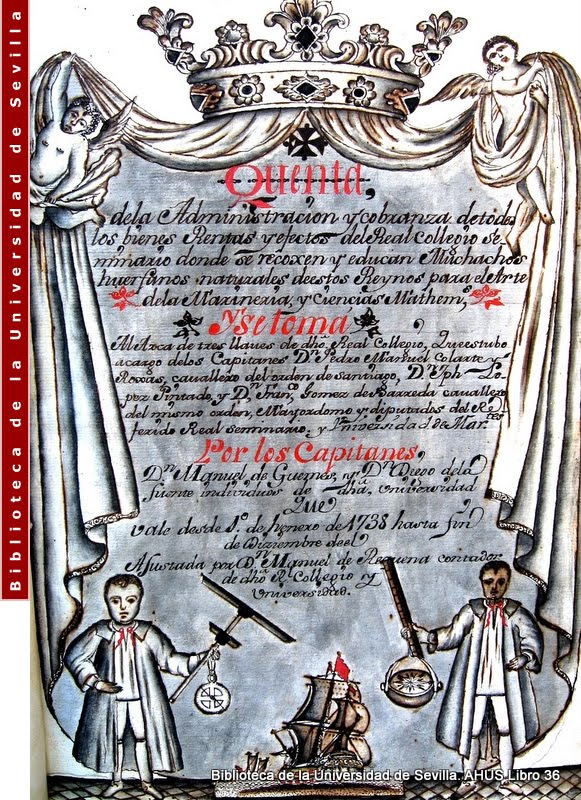 Biblioteca de la Universidad de Sevilla
Quenta,
dela Administracion y cobranza detodos
los bienes Rentas yefectos del Real Collegio Se
minario donde se recoxen y educan Muchachos
huerfanos naturales deestos Reynos para el Arte
dela Marineria, y Ciencias Mathem,
Ysetoma
Al Arca de tres llaves de dho. Real Collegio, Queestubo
acargo delos Capitanes Dn. Pedro Manuel Colarte y
cavallero del orden de santiago, Dn. Jph. Lo-
pez Pintado, y Dn. Fran, Gomez de Barreda cavalleros
del mismo orden, Mayordomo y diputados del Re
ferido Real seminario, y Universidad de Mar.tes
Por los Capitanes,
Dn. Manuel de y Dn. Diego dela
fuente individuos de dha. Universidad
Que
vale desde 1º. de henero de 1738 hasta fin
de Diziembre deel
Ajustada por Dn. Manuel de Requena contador
de dho Rl. Collegio y
Universidad.
Biblioteca de la Universidad de Sevilla. AHUS Libro 36